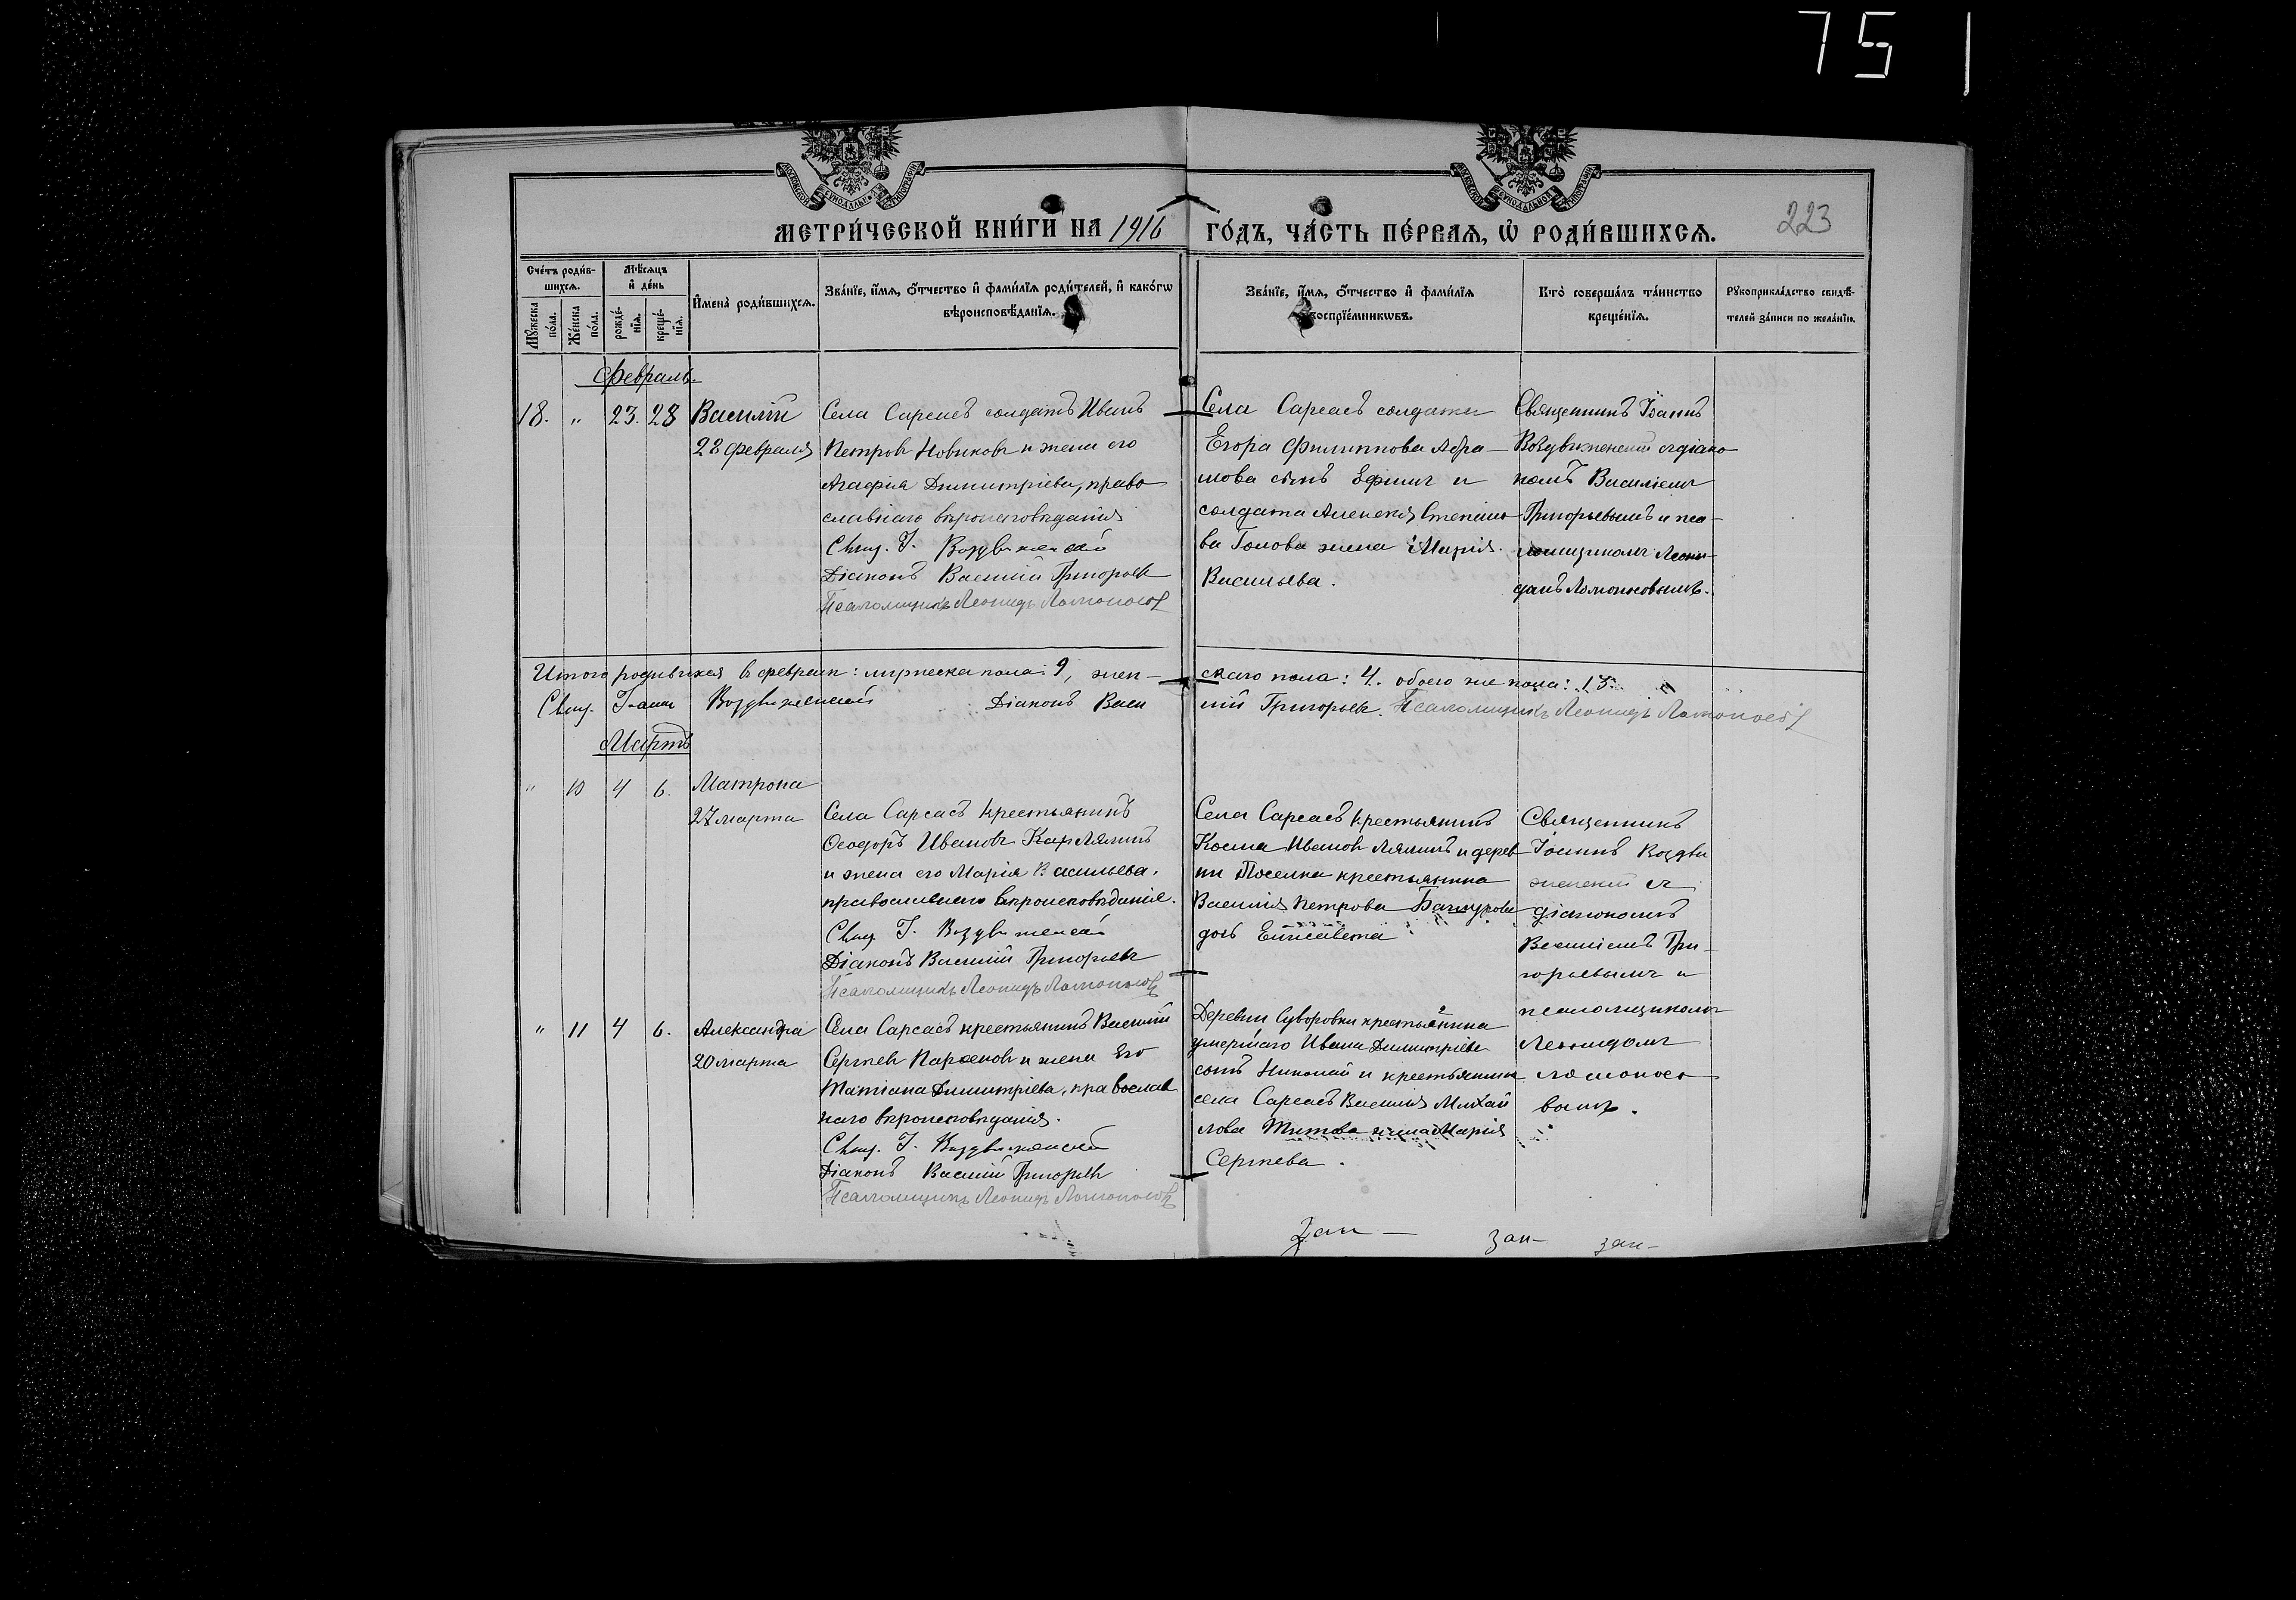 75
МЕТРИ́ЧЕСКОЙ КНИ́ГИ НА 1916 ГО́ДЪ, ЧА́СТЬ ПЕ́РВАЯ, Ѡ҆ РОДИ́ВШИХСЯ.
223
Сче́тъ роди́в-
шихся.
Мѣ́сяцъ
и҆ де́нь
Мꙋ́жеска
по́ла.
Же́нска
по́ла.
рожде́-
нїя.
креще́-
нїя.
И҆мена̀ роди́вшихся.
Зва́нїе, и҆́мя, ѻ҆́тчество и҆ фами́лїя роди́телей, и҆ како́гѡ
вѣроисповѣ́данїя.
Зва́нїе, и҆́мя, ѻ҆́тчество и҆ фами́лїя
воспрїе́мникѡвъ.
Кто̀ соверша́лъ та́инство
креще́нїя.
Рꙋкоприкла́дство свидѣ́-
телей за́писи по жела́нїю.
Февраль.
18. „ 23. 28
Василій
28 февраля
Села Сарсасъ солдатъ Иванъ
Петровъ Новиковъ и жена его
Агафія Димитріева, право
славнаго вѣроисповѣданія
Свящ. I. Воздвиженскій
Діаконъ Василій Григорьевъ
Псаломщикъ Леонидъ Ломоносовъ
Села Сарсасъ солдата
Егора Филиппова Абра-
мова сынъ Ефимъ и
солдата Алексея Степано
ва Голова жена Марія
Васильева.
Священникъ Iоаннъ
Воздвиженскій съ діако
номъ Василіемъ
Григорьевымъ и пса-
ломщикомъ Леони-
домъ Ломоносовымъ.
Итого родивихся въ феврале: мужеска пола: 9, жен-
скаго пола: 4. обоего же пола: 13.
Свящ. Iоаннъ Воздвиженскій Діаконъ Васи
лій Григорьевъ. Псаломщикъ Леонидъ Ломоносовъ
Мартъ
„ 10 4 6.
Матрона
27 марта
Села Сарсасъ крестьянинъ
Ѳеодоръ Ивановъ Лялинъ
и жена его Марія Васильева,
православнаго вѣроисповѣданія.
Свящ. I. Воздвиженскій
Діаконъ Василій Григорьевъ
Псаломщикъ Леонидъ Ломоносовъ
Села Сарсасъ крестьянинъ
Косма Ивановъ Лялинъ и дерев
ни Поселка крестьянина
Василія Петрова
дочь Елисавета
Священникъ
Iоаннъ Воздви
женскій съ
діакономъ
Василіемъ Гри-
горьевымъ и
псаломщикомъ
Леонидомъ
Ломоносо-
вымъ.
„ 11 4 6.
Александра
20 марта
Села Сарсасъ крестьянинъ Василій
Сергѣевъ Парѳеновъ и жена Его
Татіана Димитріева, православ
наго вѣроисповѣданія.
Свящ. I. Воздвиженскій
Діаконъ Василій Григорьевъ
Псаломщикъ Леонидъ Ломоносовъ
Деревни Суворовки крестьянина
умершаго Ивана Димитріева
сынъ Николай и крестьянина
села Сарсасъ Василія Михай
лова Титова жена Марія
Сергѣева.
Зап— зап— зап—